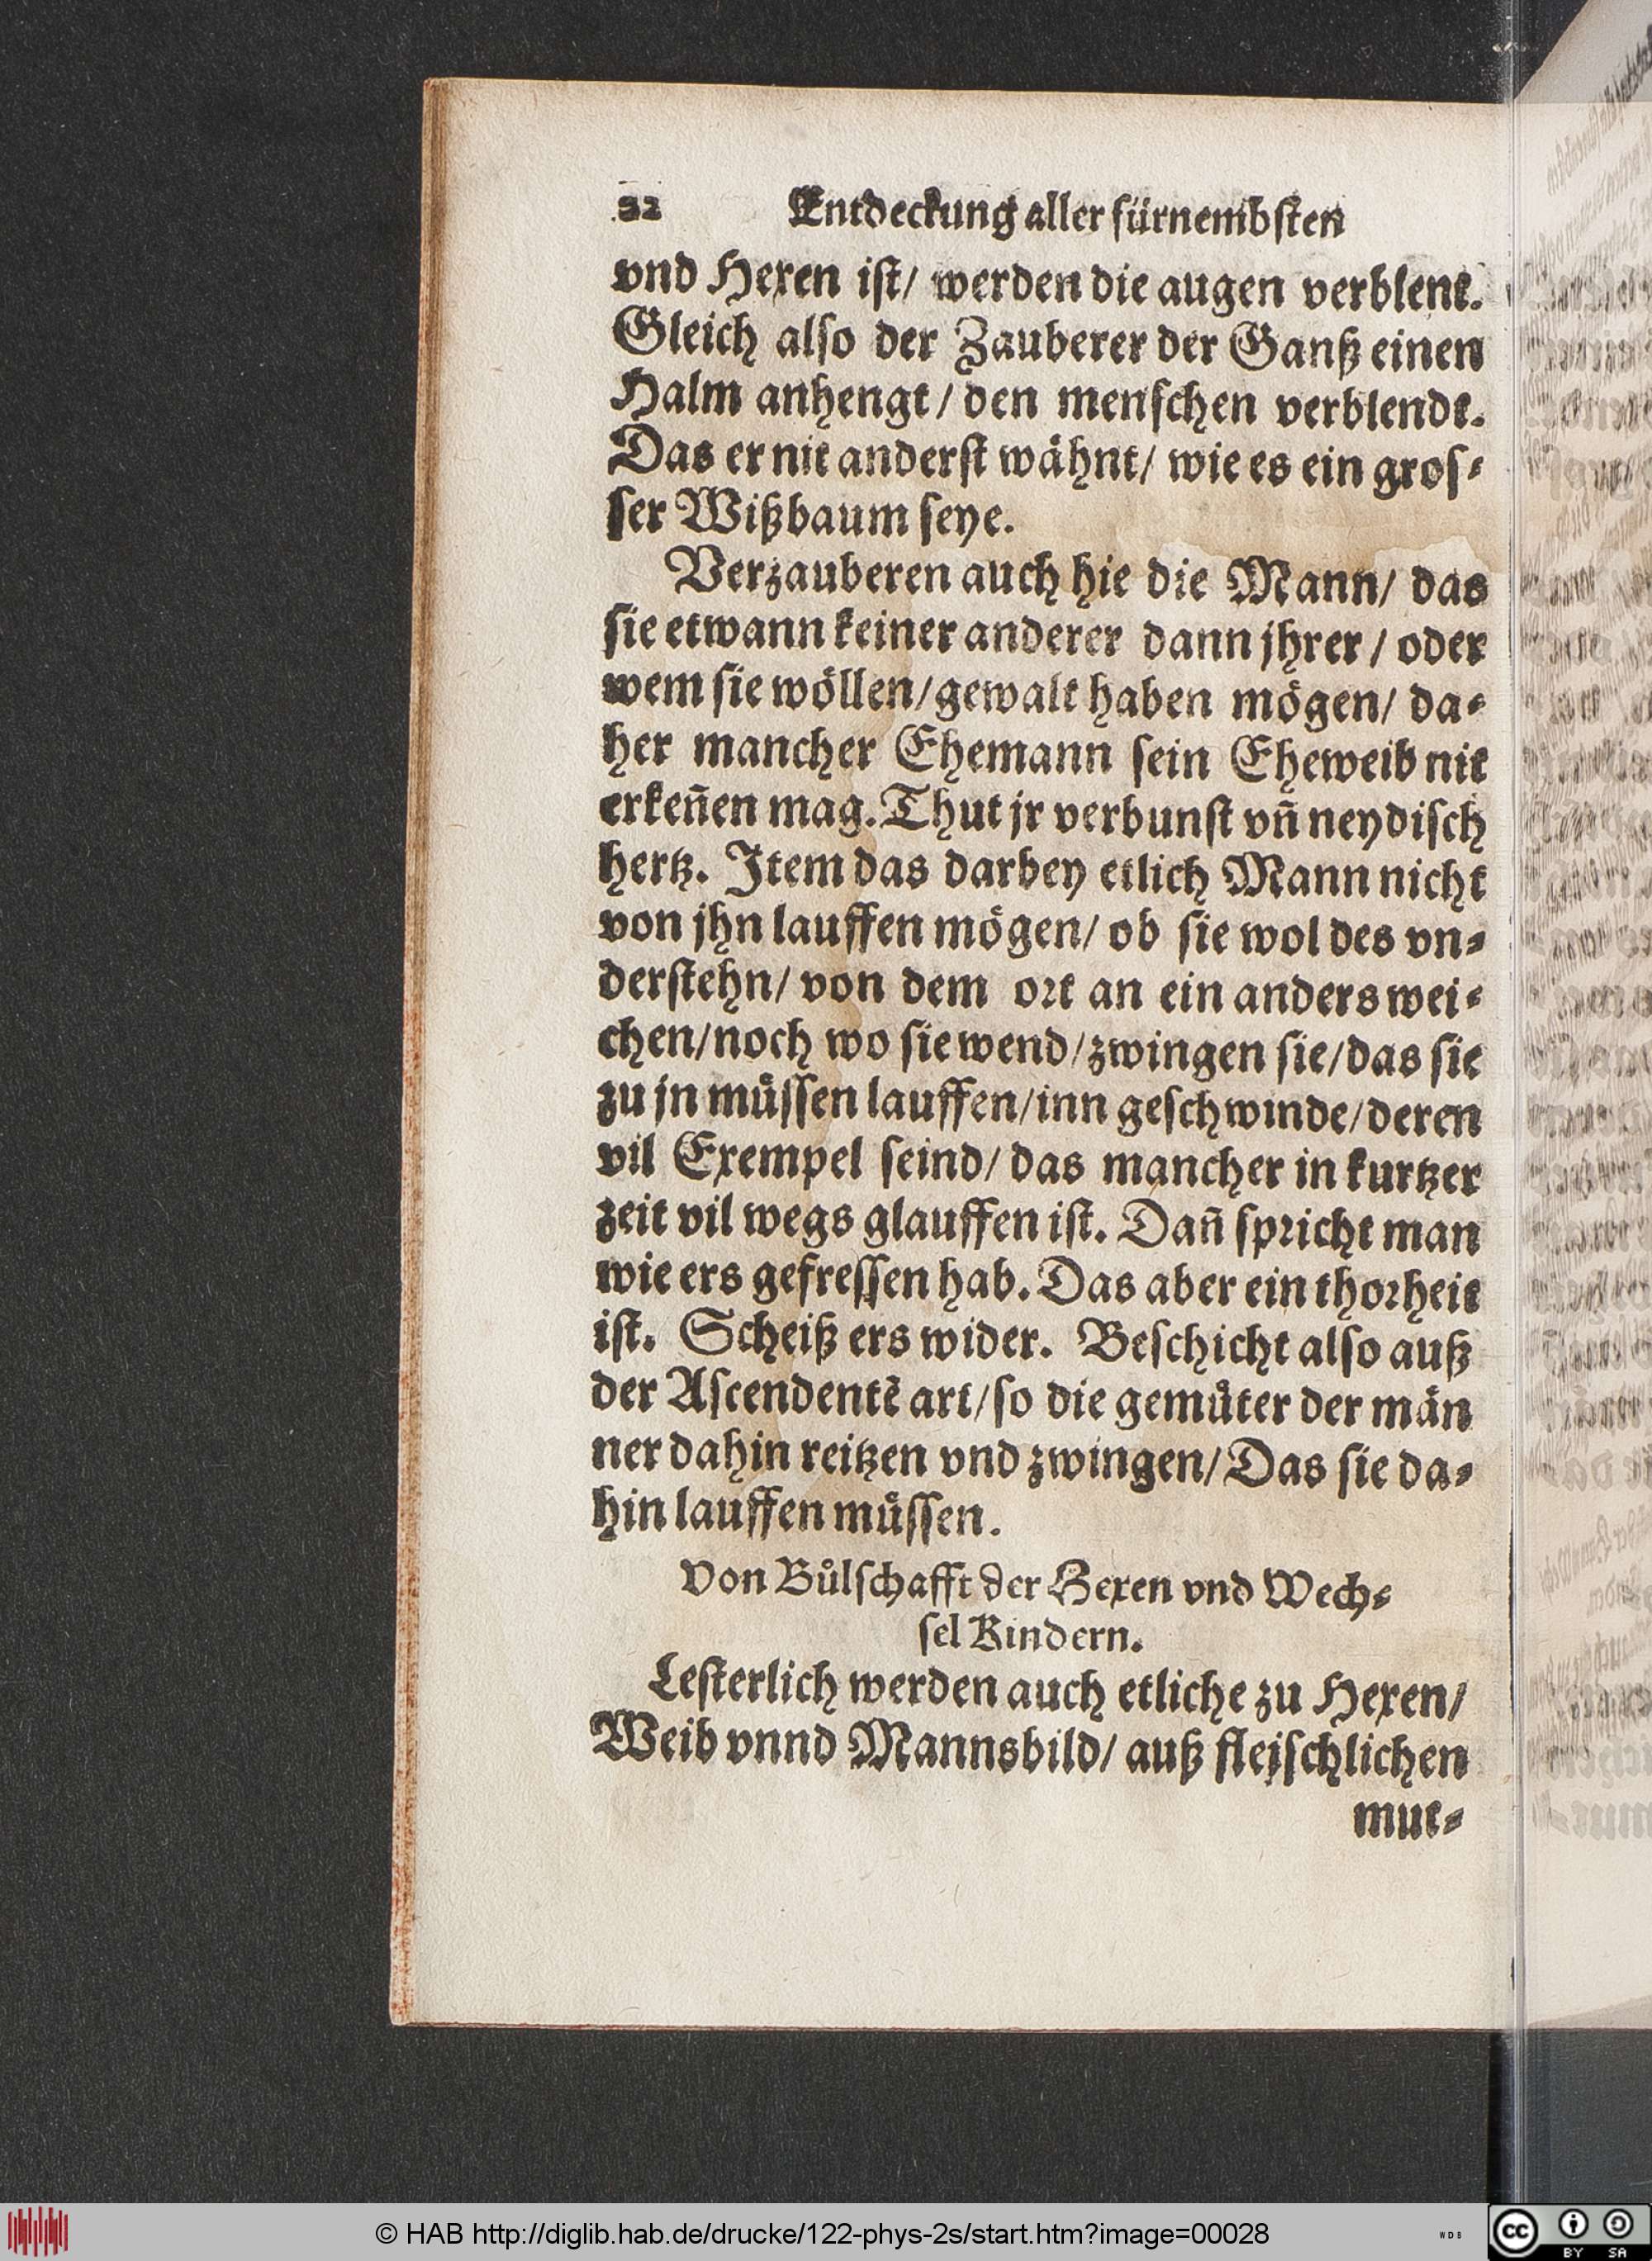 32 Entdeckung aller fürnembſten
vnd Hexen iſt/ werden die augen verblent.
Gleich alſo der Zauberer der Ganß einen
Halm anhengt / den menſchen verblendt.
Das er nit anderſt wåhnt/ wie es ein groſ⸗
ſer Wißbaum ſeye.
Verzauberen auch hie die Mann/ das
ſie etwann keiner anderer dann jhrer / oder
wem ſie wöllen/ gewalt haben mögen/ da⸗
her mancher Ehemann ſein Eheweib nit
erkeñen mag. Thut jr verbunſt vñ neydiſch
hertz. Item das darbey etlich Mann nicht
von jhn lauffen mögen/ ob ſie wol des vn⸗
derſtehn/ von dem ort an ein anders wei⸗
chen/ noch wo ſie wend/ zwingen ſie/ das ſie
zu jn müſſen lauffen/ inn geſchwinde/ deren
vil Exempel ſeind/ das mancher in kurtzer
zeit vil wegs glauffen iſt. Dañ ſpricht man
wie ers gefreſſen hab. Das aber ein thorheit
iſt. Scheiß ers wider. Beſchicht alſo auß
der Aſcendentẽ art/ ſo die gemüter der män
ner dahin reitzen vnd zwingen/ Das ſie da⸗
hin lauffen müſſen.
Von Bůlſchafft der Hexen vnd Wech⸗
ſel Kindern.
Leſterlich werden auch etliche zu Hexen/
Weib vnnd Mannsbild/ auß fleiſchlichen
mut⸗
© HAB http://diglib.hab.de/drucke/122-phys-2s/start.htm?image=00028
WDB
cc
BY SA